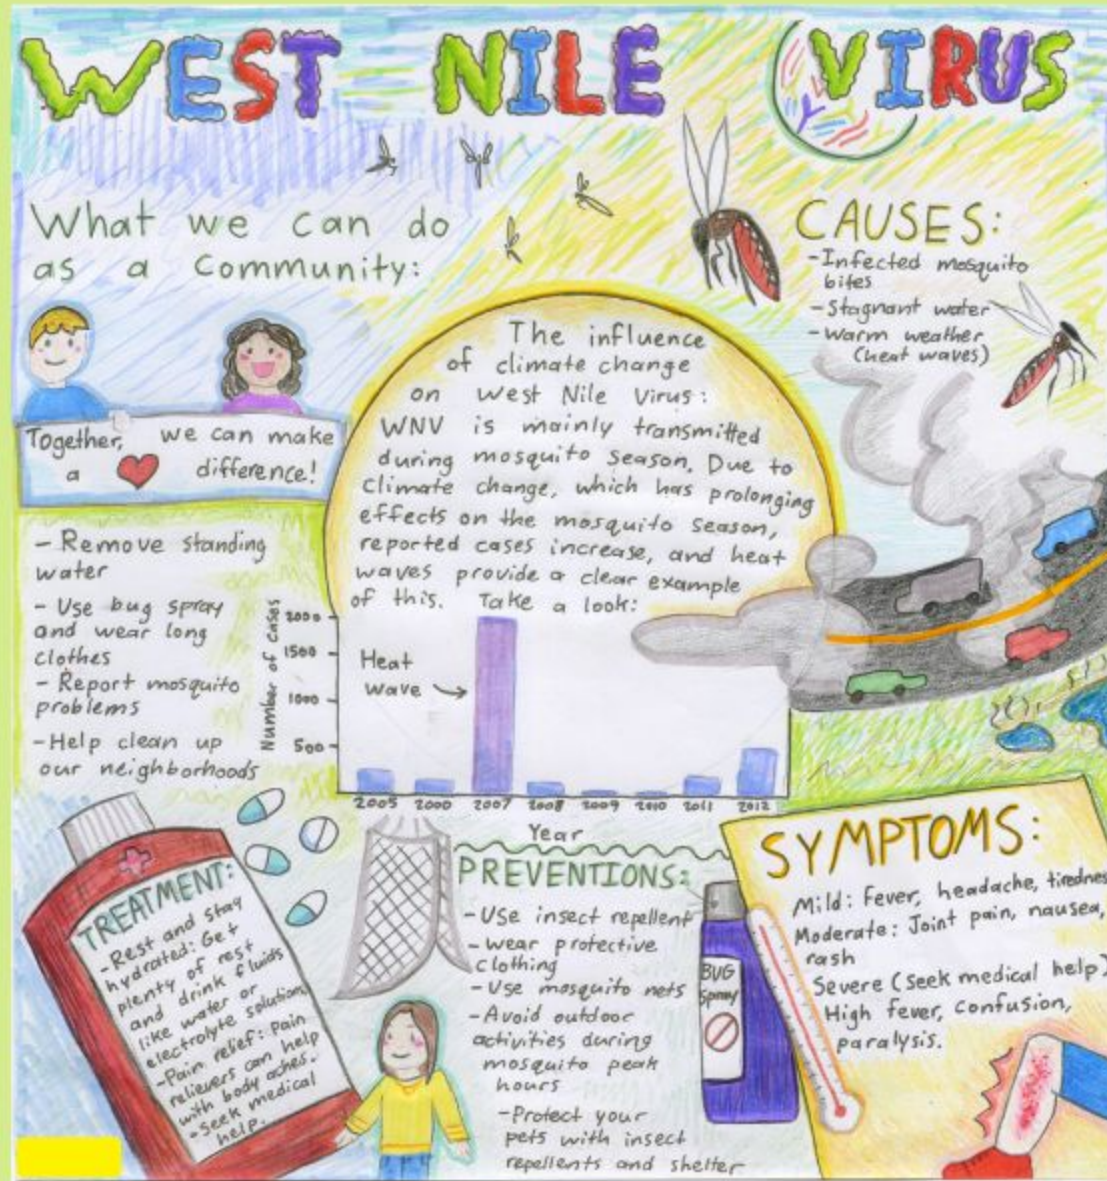 WEST NILE VIRUS
What we can do
as a Community:
Together, we can make
a difference!
- Remove standing
water
- Use bug spray
and wear long
clothes
- Report mosquito
problems
- Help clean up
our neighborhoods
CAUSES:
- Infected mosquito
bites
- Stagnant water
- Warm weather
(heat waves)
The influence
of climate change
on West Nile Virus:
WNV is mainly transmitted
during mosquito season. Due to
climate change, which has prolonging
effects on the mosquito season,
reported cases increase, and heat
waves provide a clear example
of this. Take a look:
Number of Cases
2000
1500
1000
500
Heat
wave
2005 2000 2007 2008 2009 2010 2011 2012
Year
TREATMENT:
- Rest and stay
hydrated: Get
plenty of rest
and drink fluids
like water or
electrolyte solutions
- Pain relief: Pain
relievers can help
with body aches.
- Seek medical
help.
PREVENTIONS:
- Use insect repellent
- Wear protective
clothing
- Use mosquito nets
- Avoid outdoor
activities during
mosquito peak
hours
- Protect your
pets with insect
repellents and shelter
BUG
Spray
SYMPTOMS:
Mild: Fever, headache, tirednes
Moderate: Joint pain, nausea,
rash
Severe (Seek medical help)
High fever, confusion,
paralysis.